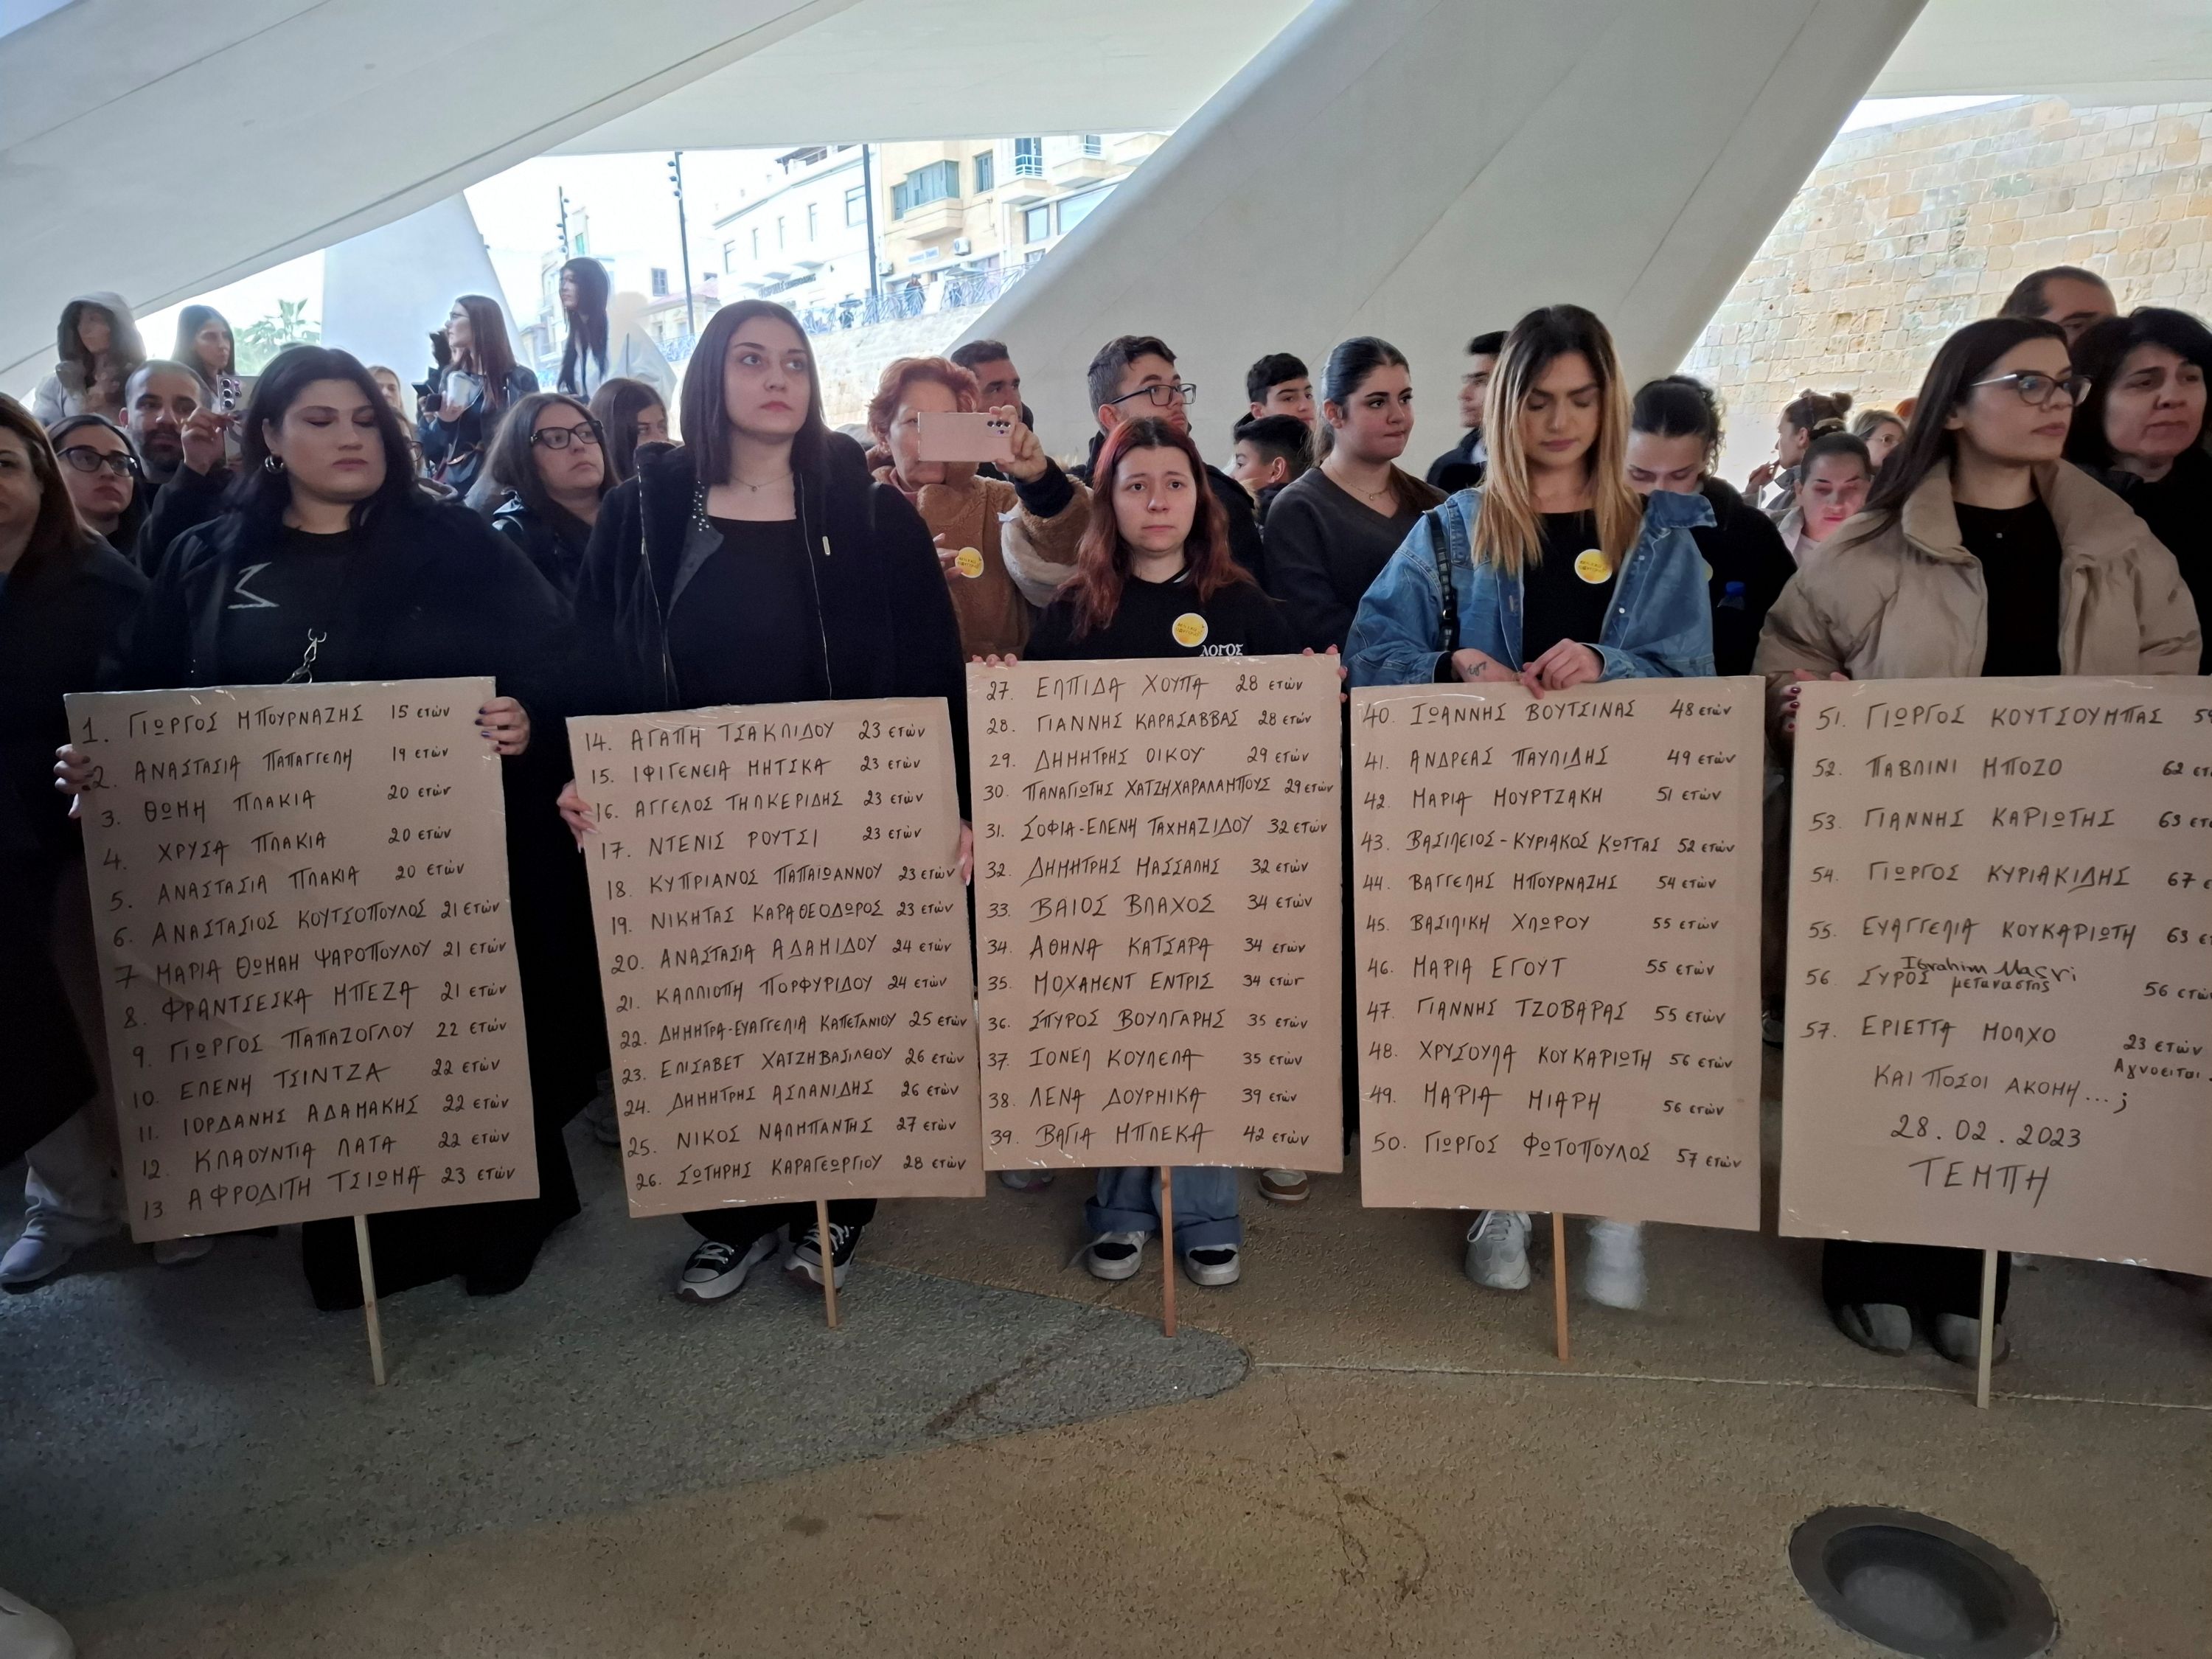 1. ΓΙΩΡΓΟΣ ΜΠΟΥΡΝΑΖΗΣ 15 ετών
2. ΑΝΑΣΤΑΣΙΑ ΠΑΠΑΓΓΕΛΗ 19 ετών
3. ΘΩΜΗ ΠΛΑΚΙΑ 20 ετών
4. ΧΡΥΣΑ ΠΛΑΚΙΑ 20 ετών
5. ΑΝΑΣΤΑΣΙΑ ΠΛΑΚΙΑ 20 ετών
6. ΑΝΑΣΤΑΣΙΟΣ ΚΟΥΤΣΟΠΟΥΛΟΣ 21 ετών
7 ΜΑΡΙΑ ΘΩΜΑΗ ΨΑΡΟΠΟΥΛΟΥ 21 ετών
8. ΦΡΑΝΤΣΕΣΚΑ ΜΠΕΖΑ 21 ετών
9. ΓΙΩΡΓΟΣ ΠΑΠΑΖΟΓΛΟΥ 22 ετών
10. ΕΛΕΝΗ ΤΣΙΝΤΖΑ 22 ετών
11. ΙΟΡΔΑΝΗΣ ΑΔΑΜΑΚΗΣ 22 ετών
12. ΚΛΑΟΥΝΤΙΑ ΛΑΤΑ 22 ετών
13 ΑΦΡΟΔΙΤΗ ΤΣΙΩΜΑ 23 ετών
14. ΑΓΑΠΗ ΤΣΑΚΛΙΔΟΥ 23 ετών
15. ΙΦΙΓΕΝΕΙΑ ΜΗΤΣΚΑ 23 ετών
16. ΑΓΓΕΛΟΣ ΤΗΛΚΕΡΙΔΗΣ 23 ετών
17. ΝΤΕΝΙΣ ΡΟΥΤΣΙ 23 ετών
18. ΚΥΠΡΙΑΝΟΣ ΠΑΠΑΙΩΑΝΝΟΥ 23 ετών
19. ΝΙΚΗΤΑΣ ΚΑΡΑΘΕΟΔΩΡΟΣ 23 ετών
20. ΑΝΑΣΤΑΣΙΑ ΑΔΑΜΙΔΟΥ 24 ετών
21. ΚΑΛΛΙΟΠΗ ΠΟΡΦΥΡΙΔΟΥ 24 ετών
22. ΔΗΜΗΤΡΑ-ΕΥΑΓΓΕΛΙΑ ΚΑΠΕΤΑΝΙΟΥ 25 ετών
23. ΕΛΙΣΑΒΕΤ ΧΑΤΖΗΒΑΣΙΛΕΙΟΥ 26 ετών
24. ΔΗΜΗΤΡΗΣ ΑΣΛΑΝΙΔΗΣ 26 ετών
25. ΝΙΚΟΣ ΝΑΛΜΠΑΝΤΗΣ 27 ετών
26. ΣΩΤΗΡΗΣ ΚΑΡΑΓΕΩΡΓΙΟΥ 28 ετών
ΛΟΓΟΣ
27. ΕΛΠΙΔΑ ΧΟΥΠΑ 28 ετών
28. ΓΙΑΝΝΗΣ ΚΑΡΑΣΑΒΒΑΣ 28 ετών
29. ΔΗΜΗΤΡΗΣ ΟΙΚΟΥ 29 ετών
30. ΠΑΝΑΓΙΩΤΗΣ ΧΑΤΖΗΧΑΡΑΛΑΜΠΟΥΣ 29 ετών
31. ΣΟΦΙΑ-ΕΛΕΝΗ ΤΑΧΜΑΖΙΔΟΥ 32 ετών
32. ΔΗΜΗΤΡΗΣ ΜΑΣΣΑΛΗΣ 32 ετών
33. ΒΑΙΟΣ ΒΛΑΧΟΣ 34 ετών
34. ΑΘΗΝΑ ΚΑΤΣΑΡΑ 34 ετών
35. ΜΟΧΑΜΕΝΤ ΕΝΤΡΙΣ 34 ετών
36. ΣΠΥΡΟΣ ΒΟΥΛΓΑΡΗΣ 35 ετών
37. ΙΟΝΕΛ ΚΟΥΛΕΛΑ 35 ετών
38. ΛΕΝΑ ΔΟΥΡΜΙΚΑ 39 ετών
39. ΒΑΓΙΑ ΜΠΛΕΚΑ 42 ετών
40. ΙΩΑΝΝΗΣ ΒΟΥΤΣΙΝΑΣ 48 ετών
41. ΑΝΔΡΕΑΣ ΠΑΥΛΙΔΗΣ 49 ετών
42. ΜΑΡΙΑ ΜΟΥΡΤΖΑΚΗ 51 ετών
43. ΒΑΣΙΛΕΙΟΣ-ΚΥΡΙΑΚΟΣ ΚΩΤΤΑΣ 52 ετών
44. ΒΑΓΓΕΛΗΣ ΜΠΟΥΡΝΑΖΗΣ 54 ετών
45. ΒΑΣΙΛΙΚΗ ΧΛΩΡΟΥ 55 ετών
46. ΜΑΡΙΑ ΕΓΟΥΤ 55 ετών
47. ΓΙΑΝΝΗΣ ΤΖΟΒΑΡΑΣ 55 ετών
48. ΧΡΥΣΟΥΛΑ ΚΟΥΚΑΡΙΩΤΗ 56 ετών
49. ΜΑΡΙΑ ΜΙΑΡΗ 56 ετών
50. ΓΙΩΡΓΟΣ ΦΩΤΟΠΟΥΛΟΣ 57 ετών
51. ΓΙΩΡΓΟΣ ΚΟΥΤΣΟΥΜΠΑΣ
52. ΠΑΒΛΙΝΙ ΜΠΟΖΟ 62
53. ΓΙΑΝΝΗΣ ΚΑΡΙΩΤΗΣ 63
54. ΓΙΩΡΓΟΣ ΚΥΡΙΑΚΙΔΗΣ 67
55. ΕΥΑΓΓΕΛΙΑ ΚΟΥΚΑΡΙΩΤΗ 63
Ibrahim Masri
56. ΣΥΡΟΣ μετανάστης 56
57. ΕΡΙΕΤΤΑ ΜΟΛΧΟ 23 ετών
Αγνοείται
ΚΑΙ ΠΟΣΟΙ ΑΚΟΜΗ...;
28.02.2023
ΤΕΜΠΗ